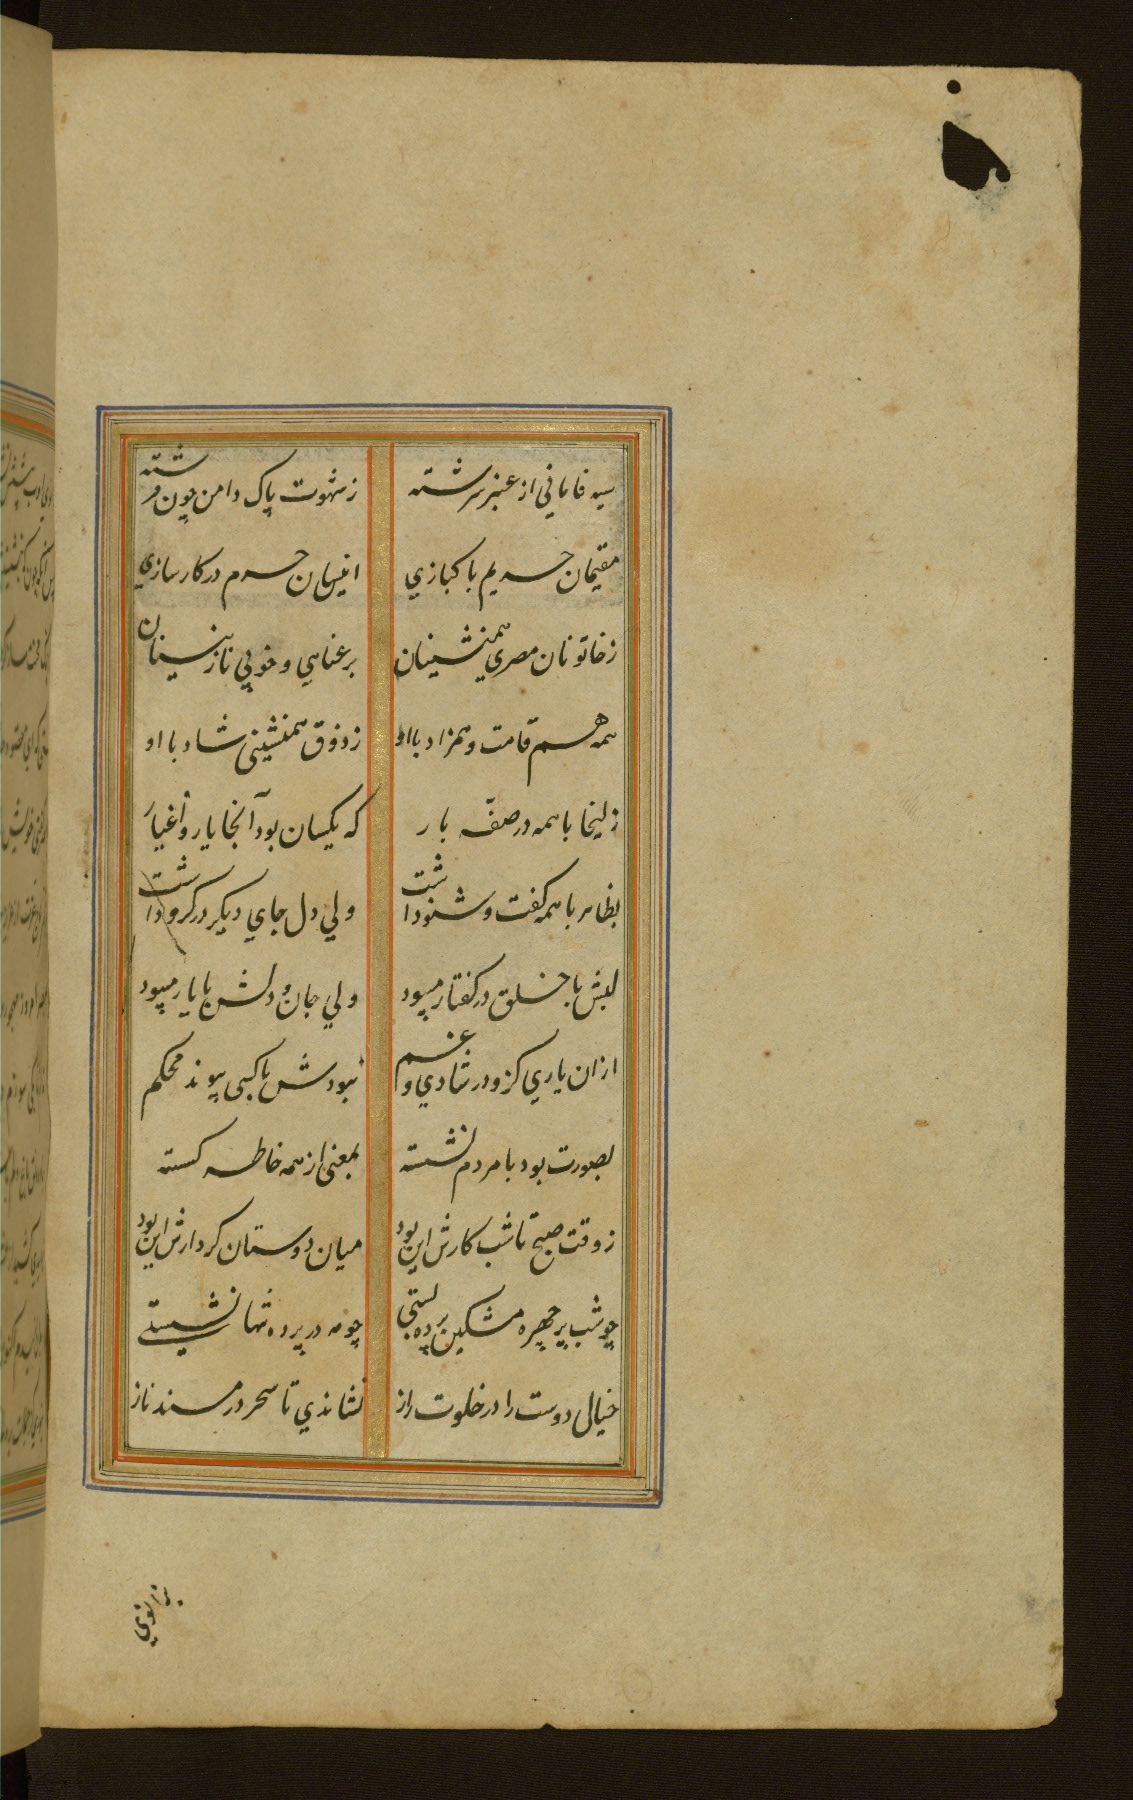 سیه فامانی از عنبر سرشته ز شهوت پاک دامن چون فرشته
مقیمان حریم پاکبازی انیسان حرم در کارسازی
ز خاتونان مصری همنشینان برعنایی و خوبی نازنینان
همه هم قامت و همزاد با او ز ذوق همنشینی شاد با او
زلیخا با همه در صفّه بار که یکسان بود آنجا یار و اغیار
بظاهر با همه کفت و شنو داشت ولی دل جای دیکر در کرو داشت
لبش با خلق در کفتار میبود ولی جان و دلش با یار میبود
از ان یاری کزو در شادی و غم نبودش با کسی پیوند محکم
بصورت بود با مردم نشسته بمعنی از همه خاطر کسسته
ز وقت صبح تا شب کارش این بود میان دوستان کردارش این بود
چو شب بر چهره مشکین پرده بستی چو مه در پرده تنها نشستی
خیال دوست را در خلوت راز نشاندی تا سحر در مسند ناز
بزانوی